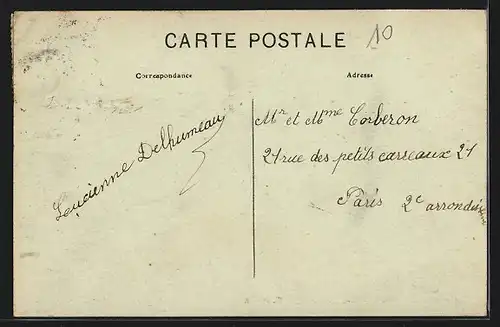 10
CARTE POSTALE
Correspondance
Adresse
Lucienne Delhumeau
Mr et Mme Corberon
21 rue des petits carreaux 21
Paris 2e arrondis